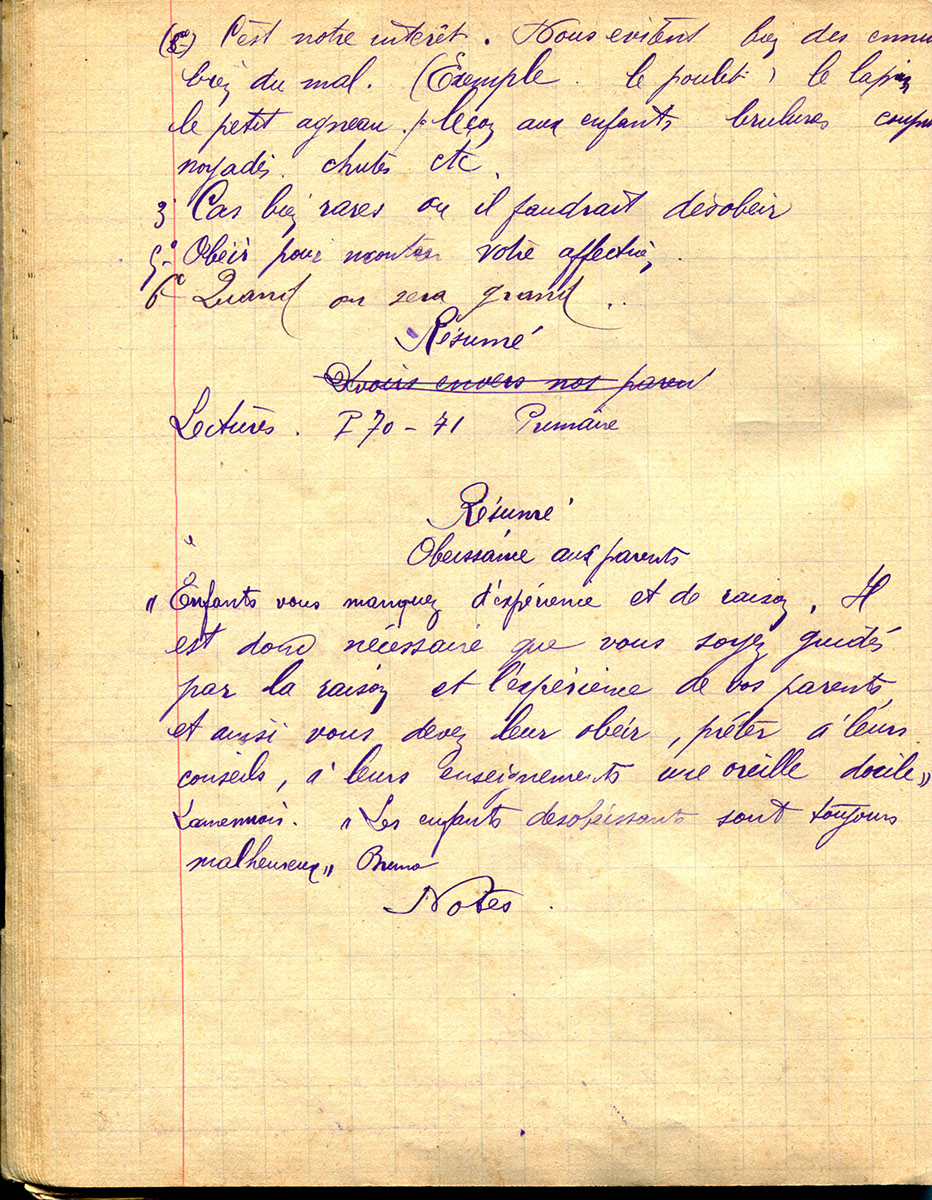 C'est notre intérêt. Nous évitent bien des ennu
bien du mal. (Exemple. le poulet, le lapin
le petit agneau. / leçon aux enfants brulures coupu
noyades. chutes etc.
3° Cas bien rares ou il faudrait désobéir
5° Obéir pour montrer votre affection.
6° Quand on sera grand..
Résumé
Devoirs envers nos paren
Lectures. P 70 - 71 Primaire
Résumé
Obéissance aux parents
"Enfants vous manquez d'expérience et de raison. Il
est donc nécessaire que vous soyez guidés
par la raison et l'expérience de vos parents,
et ainsi vous devez leur obéir, prêter à leurs
conseils, à leurs enseignements une oreille docile"
Lamennais. "Les enfants désobéissants sont toujours
malheureux" Bruno
Notes.